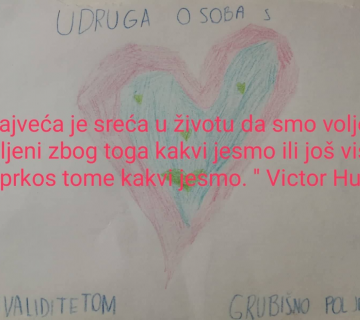 UDRUGA OSOBA S
ajveća je sreća u životu da smo volje
ljeni zbog toga kakvi jesmo ili još viš
prkos tome kakvi jesmo. " Victor Hu
VALIDITETOM GRUBIŠNO POLJE